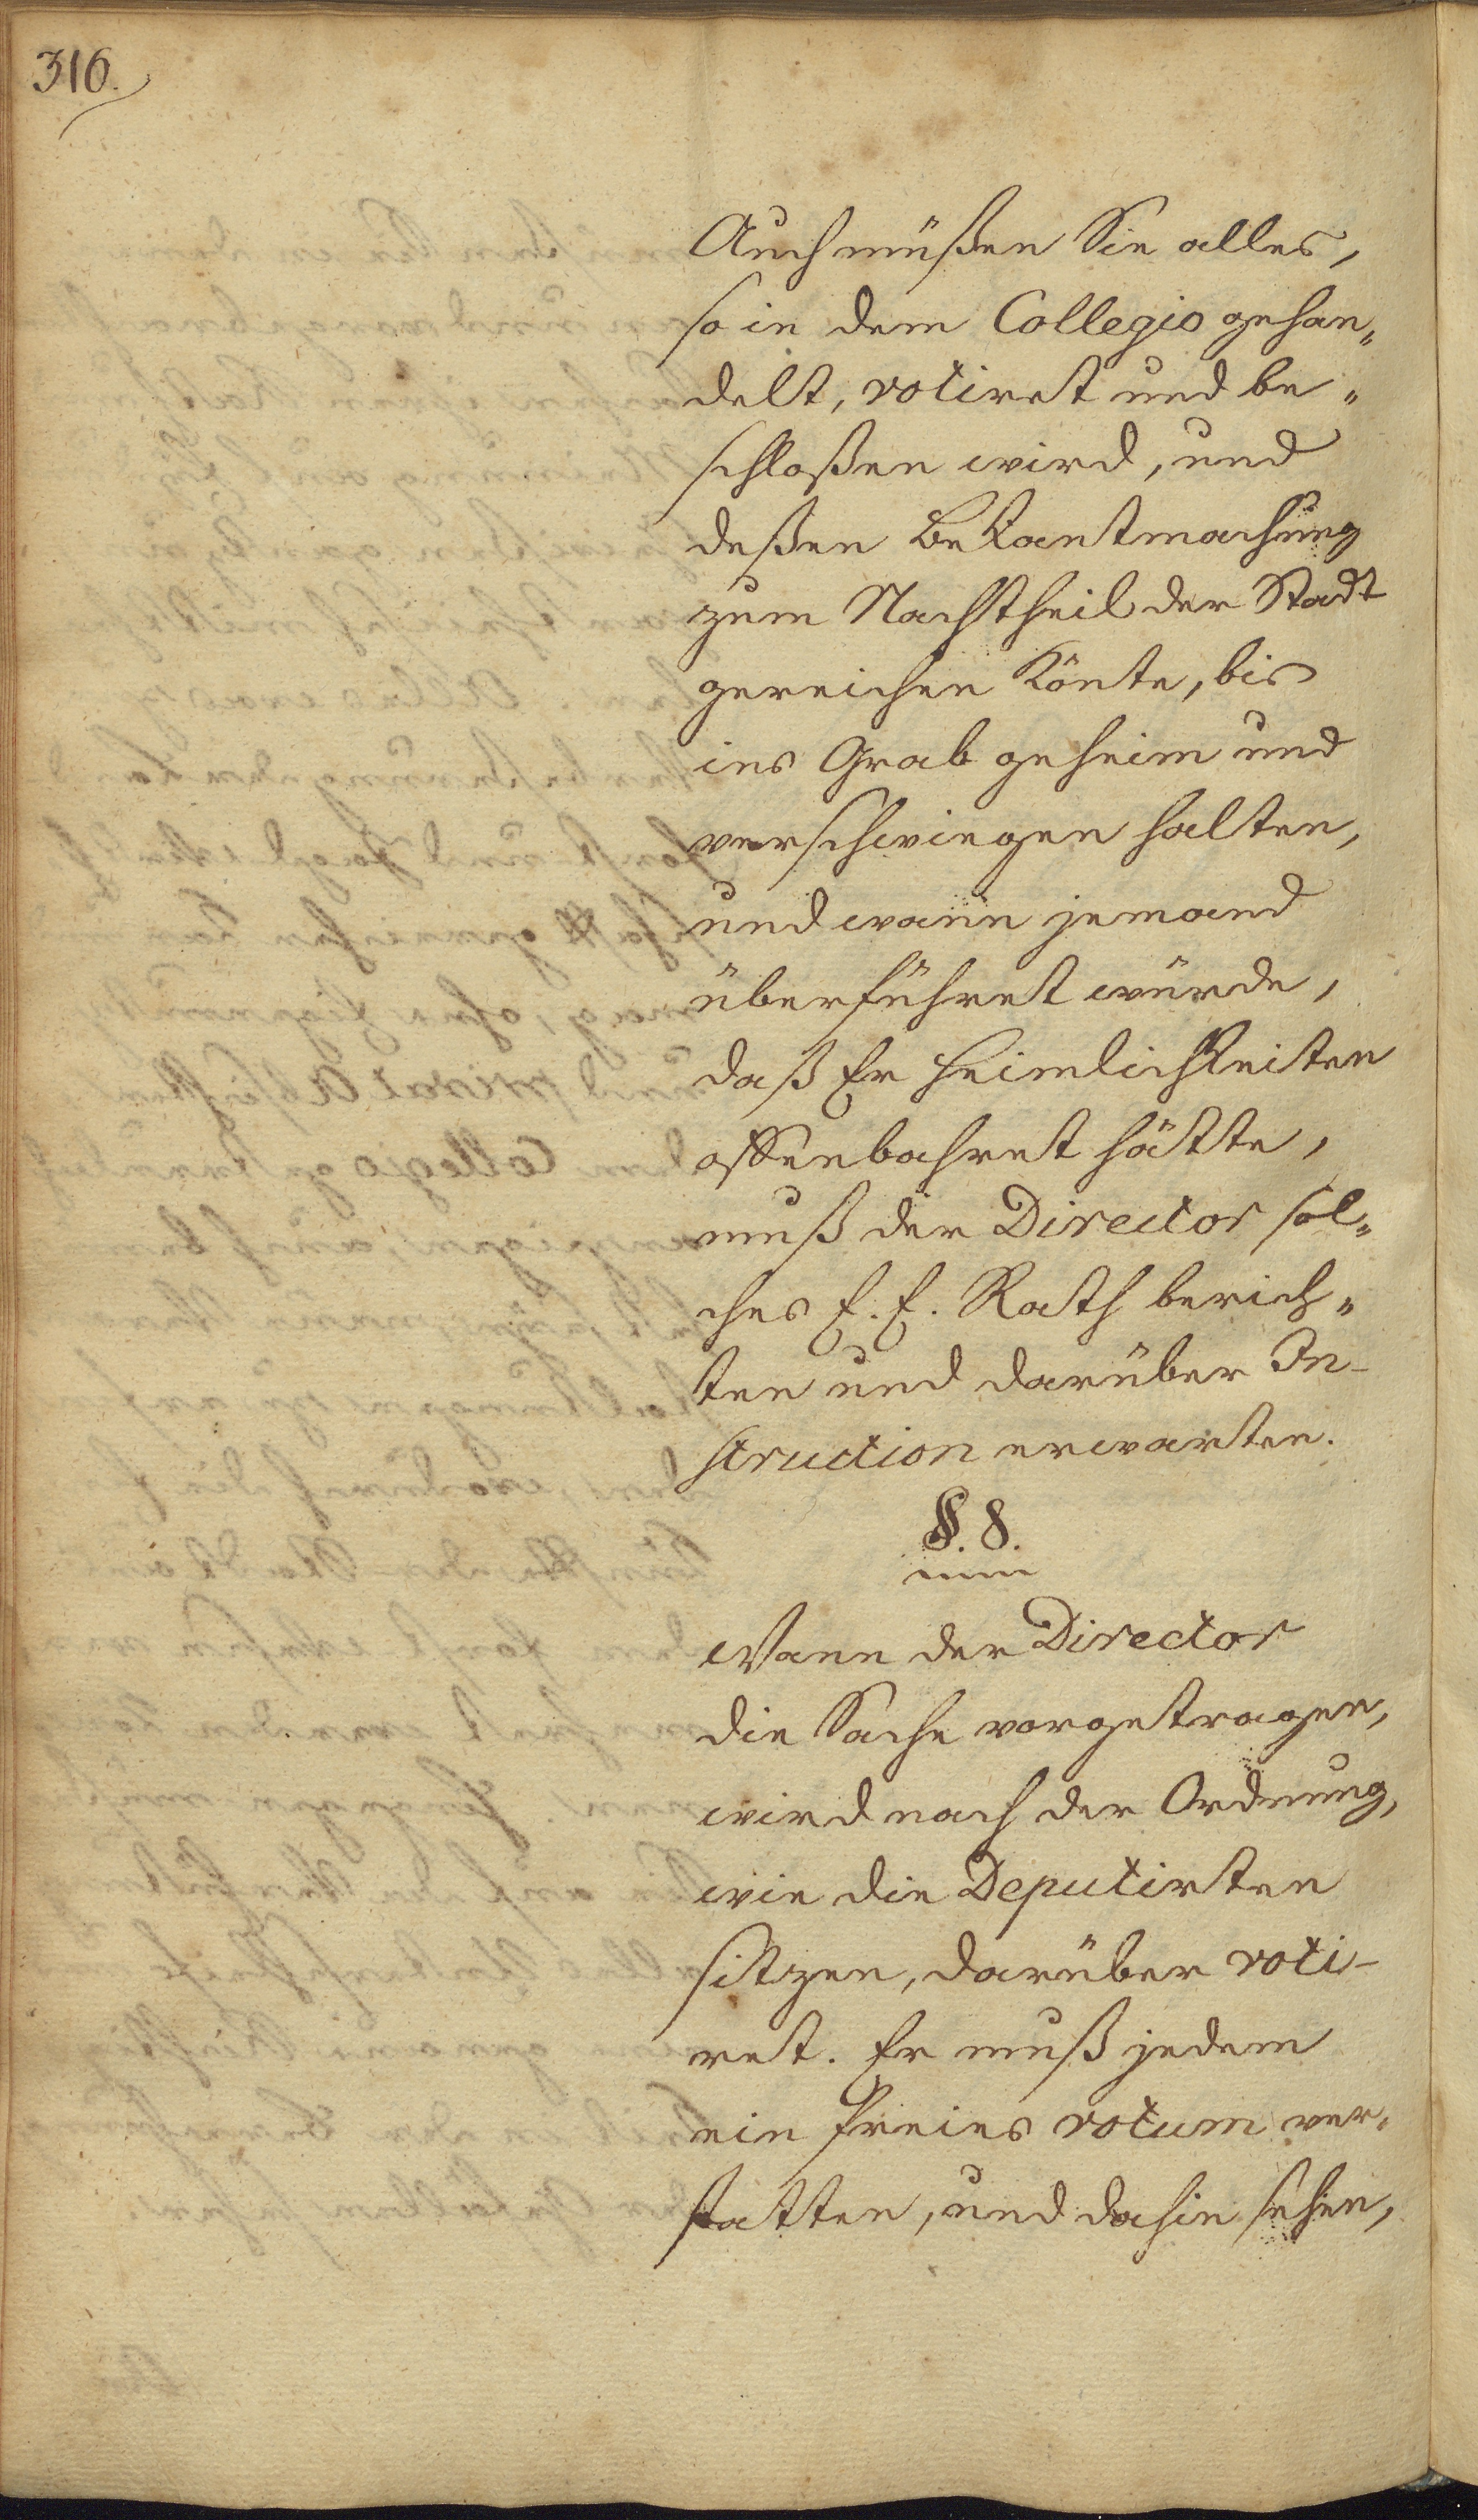 316.
Auch müßen Sie alles,
so in dem Collegio gehan„
delt, votiret und be„
schloßen wird, und
deßen Bekantmachung
zum Nachtheil der Stadt
gereichen könte, bis
ins Grab geheim und
verschwiegen halten,
und wann jemand
überführet würde,
daß Er Heimlichkeiten
offenbahret hätte,
muß der Director sol„
ches E. E. Rath berich„
ten und darüber In-
struction erwarten.
§. 8.
Wann der Director
die Sache vorgetragen,
wird nach der Ordnung,
wie die Deputirten
sitzen, darüber voti-
ret. Er muß jedem
ein freies votum ver„
statten, und dahin sehen,